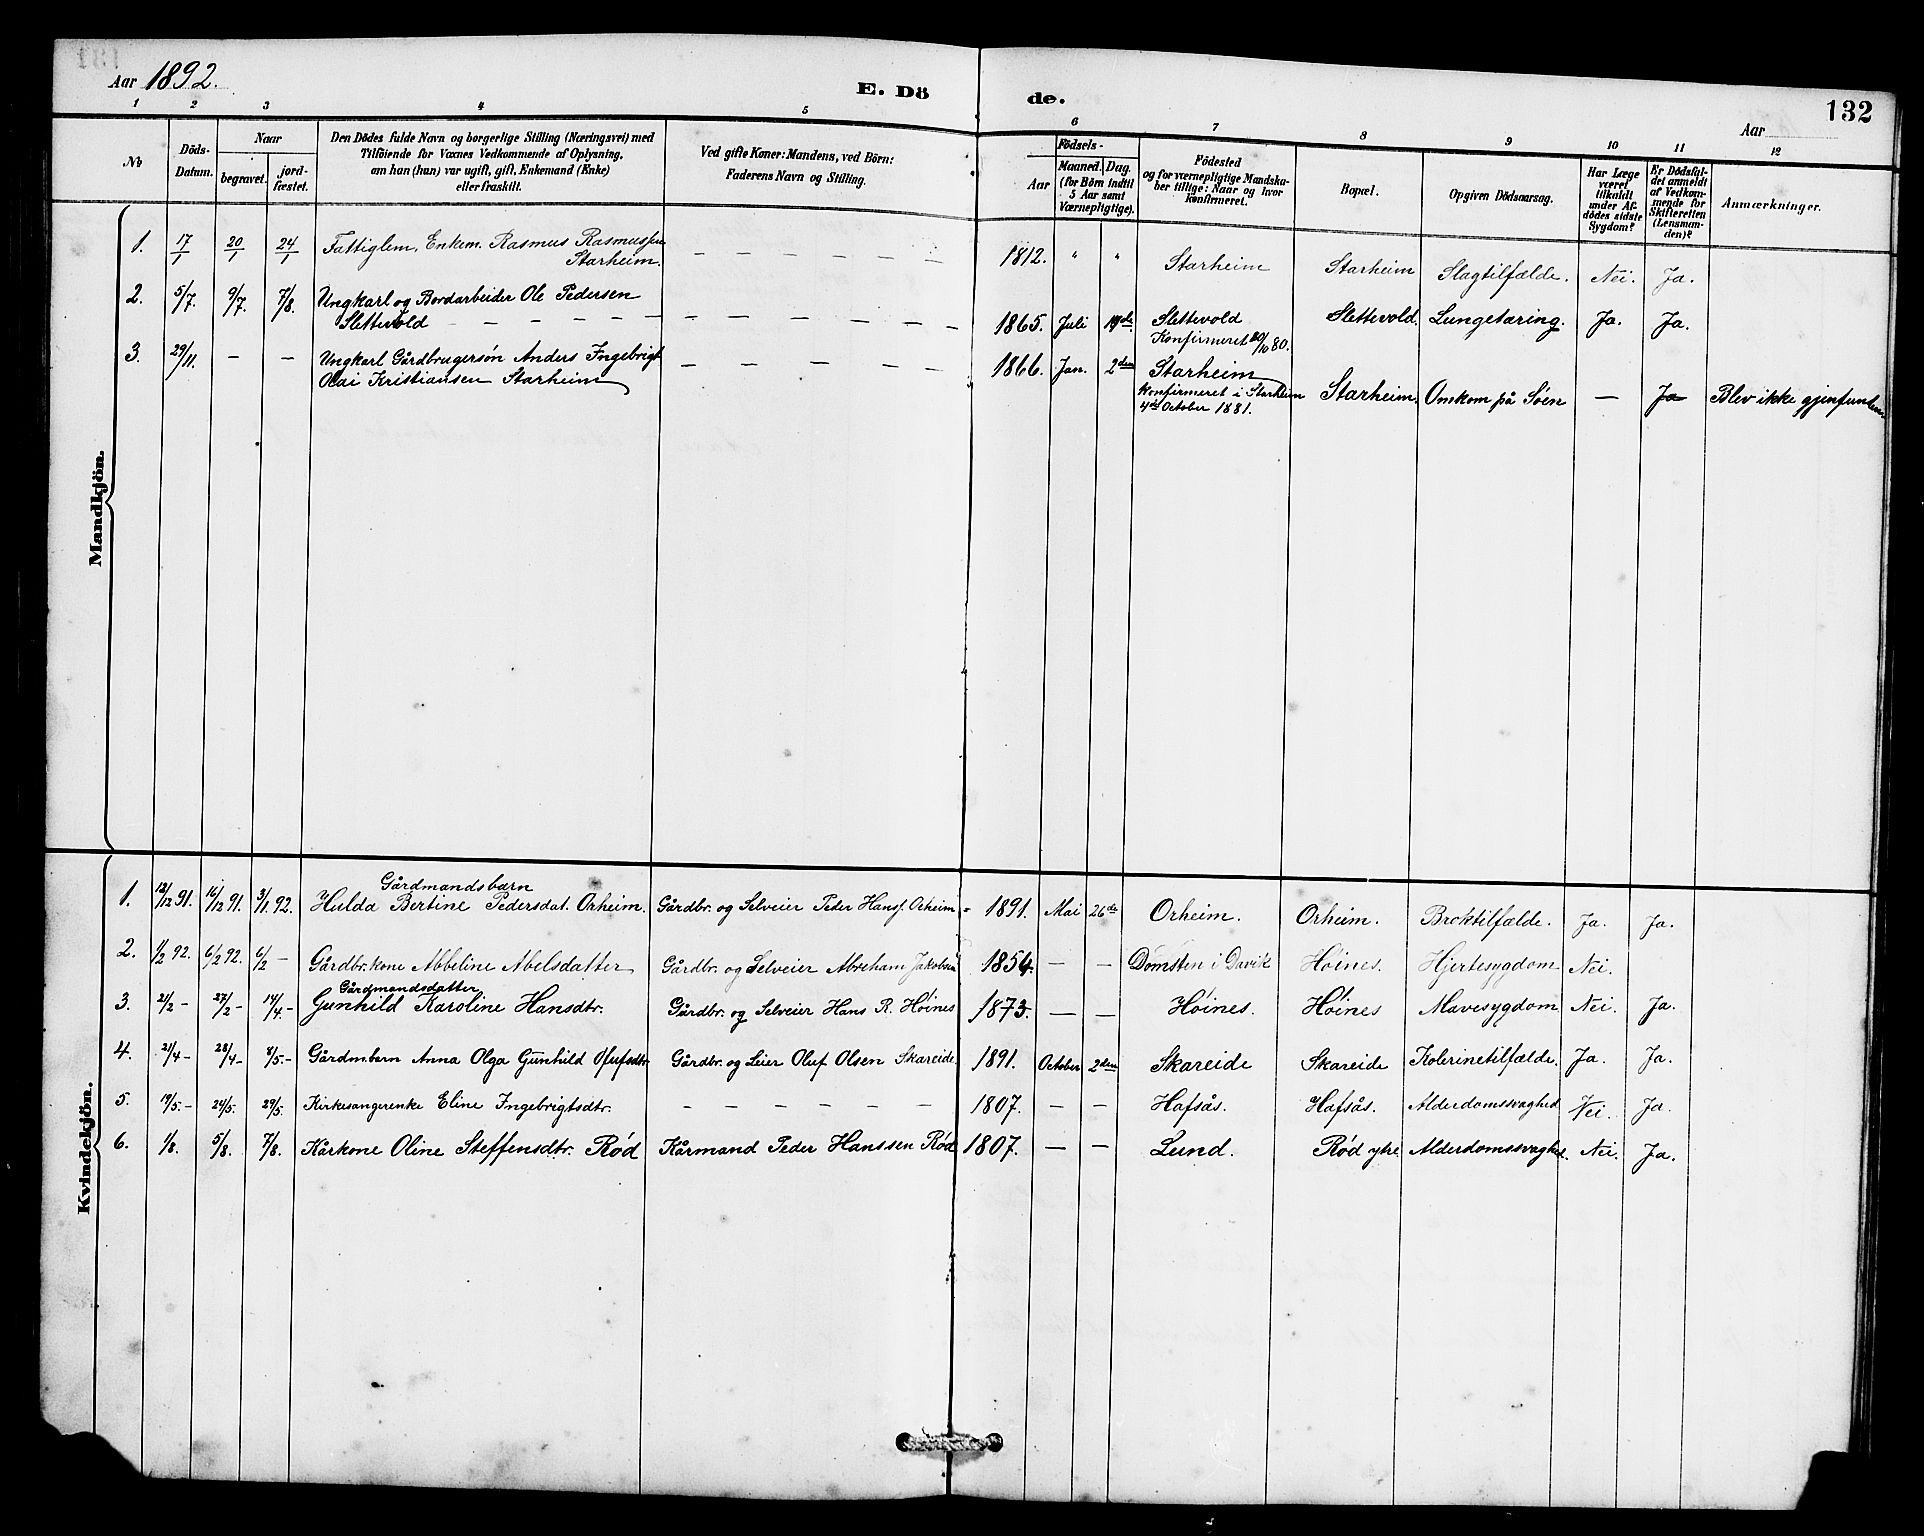 132
Aar 1892.
E. Dö
de.
Aar
1 2 3 4 5 6 7 8 9 10 11 12
No
Döds-
Datum.
Naar
begravet.
jord-
fæstet.
Den Dödes fulde Navn og borgerlige Stilling (Næringsvei) med
Tilföiende for Voxnes Vedkommende af Oplysning,
om han (hun) var ugift, gift, Enkemand (Enke)
eller fraskilt.
Ved gifte Koner: Mandens, ved Börn:
Faderens Navn og Stilling.
Födsels-
Aar
Maaned. Dag.
(for Börn indtil
5 Aar samt
Værnepligtige).
Födested
og for værnepligtige Mandska-
ber tillige: Naar og hvor
konfirmeret.
Bopæl.
Opgiven Dödsaarsag.
Har Læge
været
tilkaldt
under Af-
dödes sidste
Sygdom?
Er Dödsfal-
det anmeldt
af Vedkom-
mende for
Skifteretten
(Lensman-
den)?
Anmærkninger.
Mandkjön.
1. 17/1 20/1 24/1 Fattiglem, Enkem. Rasmus Rasmussen
Starheim. — — — — — — — 1812. " " Starheim Starheim Slagtilfælde. Nei. Ja.
2. 5/7. 9/7. 7/8. Ungkarl og Bordarbeider Ole Pedersen
Slettevold — — — — — — — 1865. Juli 19de Slettevold Slettevold. Lungetæring. Ja. Ja.
Konfirmeret /10 80.
3. 29/11. — — Ungkarl Gårdbrugersøn Anders Ingebrigt
Olai Kristiansen Starheim — — — — — 1866. Jan. 2den Starheim
Konfirmeret i Starheim
4de October 1881. Starheim. Omkom på Søen — Ja Blev ikke gjenfunden.
Kvindekjön.
Gårdmandsbarn
1. 12/12 91. 16/12 91. 3/1. 92. Hulda Bertine Pedersdat. Orheim. Gårdbr. og Selveier Peder Hansf. Orheim 1891. Mai 26de Orheim. Orheim. Broktilfælde. Ja. Ja.
2. 1/2 92. 6/2 92. 6/2 — Gårdbr. kone Abbeline Abelsdatter Gårdbr. og Selveier Abreham Jakobsen 1854. — — Domsten i Davik Høines. Hjertesygdom Nei.
Gårdmandsdatter
3. 21/2 — 27/2 — 14/4. — Gunhild Karoline Hansdtr. Gårdbr. og Selveier Hans R. Høines 1873. — — Høines. Høines Mavesygdom Nei. Ja.
4. 21/4 — 28/4 — 8/5. — Gårdm.barn Anna Olga Gunhild Olufsdtr. Gårdbr. og Leier Oluf Olsen Skareide. 1891. October 2den Skareide Skareide Kolerinetilfælde. Ja. Ja.
5. 19/5. — 24/5. 29/5. Kirkesangerenke Eline Ingebrigtsdtr. — — — — — — — 1807. — — Hafsås. Hafsås. Alderdomssvaghed Nei. Ja.
6. 1/8. 5/8. 7/8. Kårkone Oline Steffensdtr. Rød Kårmand Peder Hanssen Rød 1807. — — Lund. Rød ytre Alderdomssvaghed. Nei. Ja.